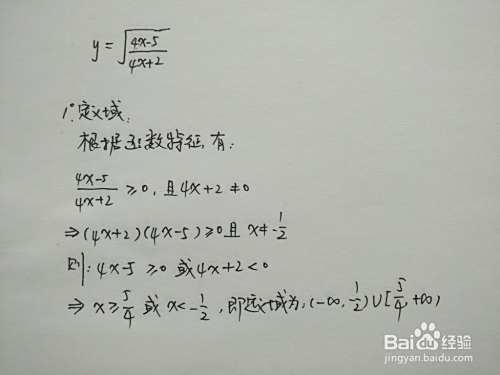 y = √((4x-5)/(4x+2))
1°. 定义域:
根据函数特征,有:
(4x-5)/(4x+2) ≥0, 且4x+2 ≠0
⇒ (4x+2)(4x-5)≥0且 x≠-1/2
则: 4x-5 ≥0 或4x+2<0
⇒ x≥5/4 或 x<-1/2, 即定义域为:(-∞, 1/2)∪[5/4, +∞)
Baidu经验
jingyan.baidu.com